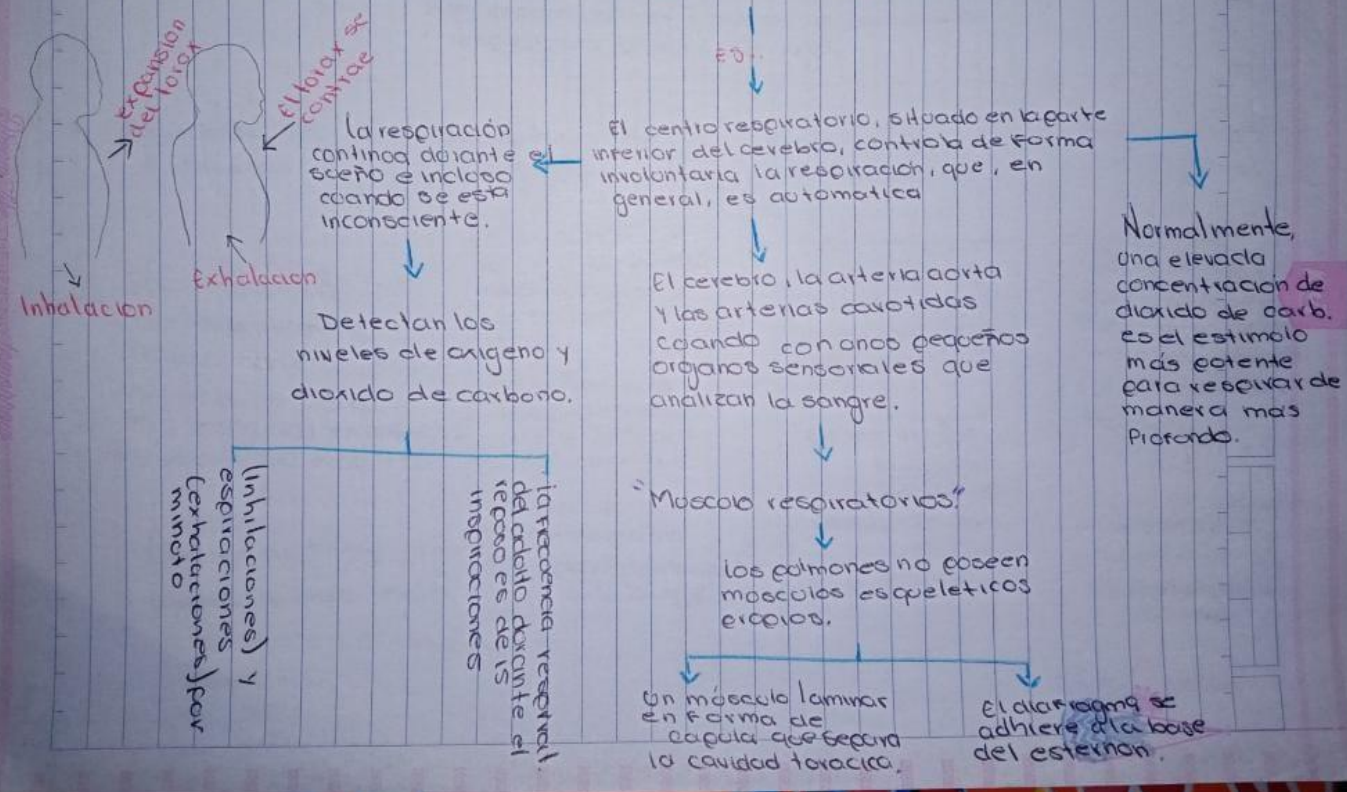 expansion
del torax
El torax se
contrae
Inhalacion
Exhalacion
ES
El centro respiratorio, situado en la parte
inferior del cerebro, controla de forma
involontaria la respiracion, que, en
general, es automatica
la respiración
continua durante el
sueño e incluso
cuando se esta
inconsciente.
Detectan los
niveles de oxigeno y
dioxido de carbono.
la frecuencia
del adulto durante el
reposo es de 15
inspiraciones
(inhilaciones) y
espiraciones
(exhalaciones) por
minuto
El cerebro, la arteria aorta
y las arterias carotidas
cuando con unos pequeños
organos sensoriales que
analizan la sangre.
"Musculo respiratorios"
los pulmones no poseen
músculos esqueleticos
un músculo laminar
en forma de
cupula que separa
la cavidad toracica.
El diafragma se
adhiere a la base
del esternon.
Normalmente,
una elevada
concentración de
dioxido de carb.
es el estimulo
más potente
para respirar de
manera mas
profundo.